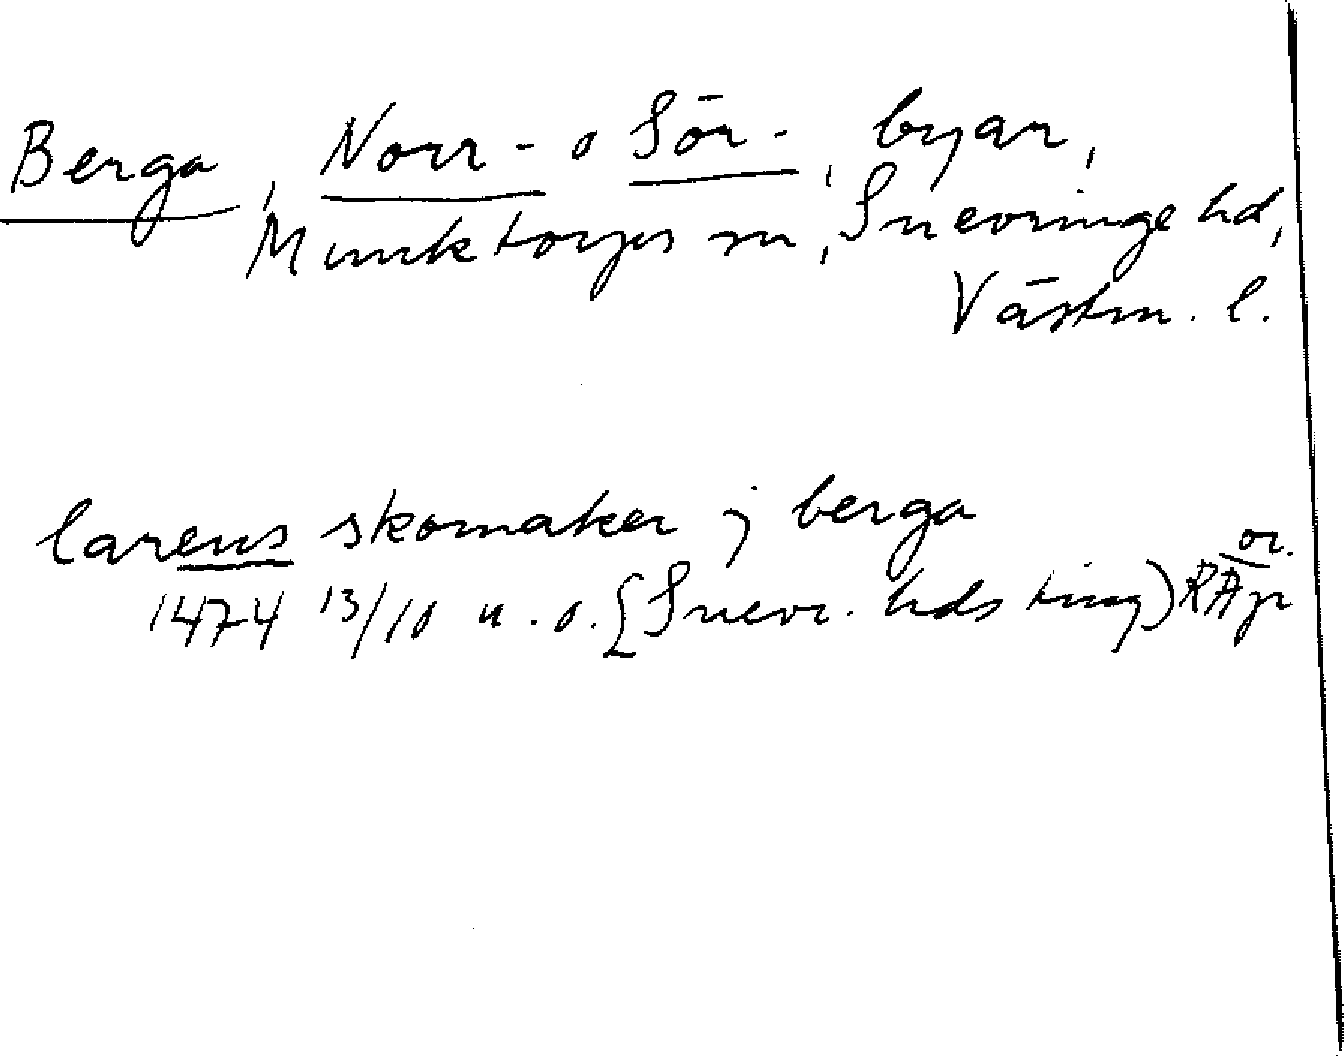 Berga, Norr- o Sör-, byar,
Munktorps sn, Snevringe hd,
Västm. l.
larens skomaker j berga
1474 13/10 u.o. (Snevr. hds ting) RAp or.